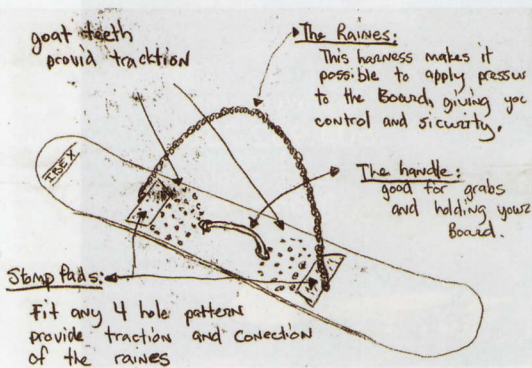 goat teeth
provid tracktion
The Raines:
This harness makes it
possible to apply pressu
to the Board, giving you
control and sicurity.
IBEX
The handle:
good for grabs
and holding your
Board.
Stomp Pads:
Fit any 4 hole pattern
provide traction and Conection
of the raines